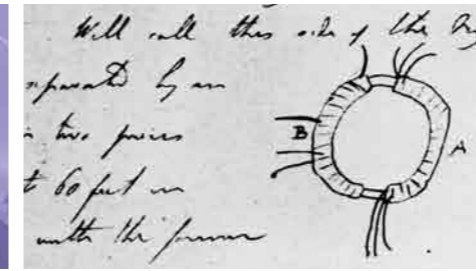 Will call this side of the
separated by an
two pieces
60 feet in
B
A
with the former